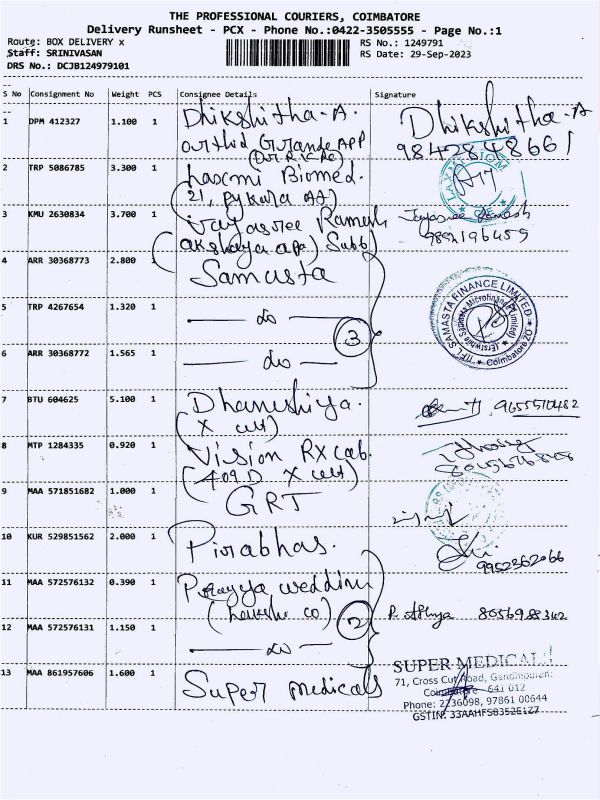 THE PROFESSIONAL COURIERS, COIMBATORE
Delivery Runsheet - PCX - Phone No.:0422-3505555 - Page No.:1
Route: BOX DELIVERY x RS No.: 1249791
Staff: SRINIVASAN RS Date: 29-Sep-2023
DRS No.: DCJB124979101
S No Consignment No Weight PCS Consignee Details Signature
1 DPM 412327 1.100 1 Dhikshitha-A Dhikshitha-A
9842848661
2 TRP 5086785 3.300 1 Laxmi Biomed.
3 KMU 2630834 3.700 1 Jayasree Ramesh
(akshaya apa) Subb)
4 ARR 30368773 2.800 1 Samasta
IIFL SAMASTA FINANCE LIMITED
(Erstwhile Samasta Microfinance Limited)
Coimbatore ZO
5 TRP 4267654 1.320 1 do
3
6 ARR 30368772 1.565 1 do
7 BTU 604625 5.100 1 Dhanushiya.
(X cut)
8 MTP 1284335 0.920 1 Vision RX Lab.
(409 D X cut)
9 MAA 571851682 1.000 1 GRT
10 KUR 529851562 2.000 1 Pirabhas.
9952362066
11 MAA 572576132 0.390 1
2
8056983342
12 MAA 572576131 1.150 1 do
13 MAA 861957606 1.600 1 Super medicals
SUPER MEDICALS
71, Cross Cut Road, Gandhipuram
Coimbatore - 641 012
Phone: 2236098, 97861 00644